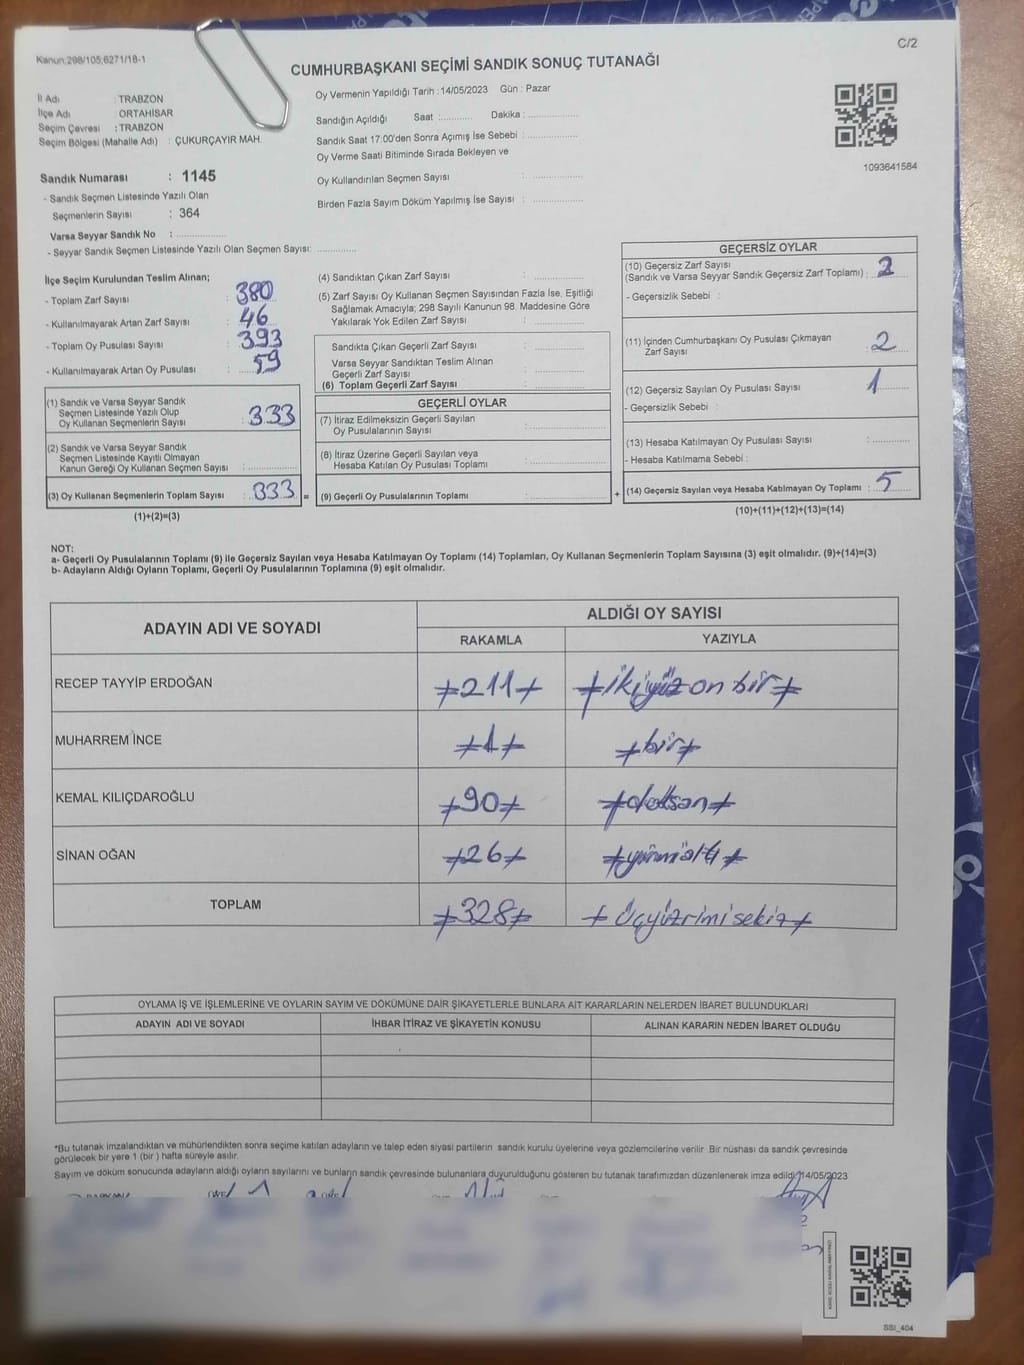 Kanun:298/105,6271/18-1
C/2
CUMHURBAŞKANI SEÇİMİ SANDIK SONUÇ TUTANAĞI
İl Adı : TRABZON
İlçe Adı : ORTAHİSAR
Seçim Çevresi : TRABZON
Seçim Bölgesi (Mahalle Adı) : ÇUKURÇAYIR MAH.
Oy Vermenin Yapıldığı Tarih : 14/05/2023 Gün : Pazar
Sandığın Açıldığı Saat :........... Dakika :................
Sandık Saat 17:00'den Sonra Açımış İse Sebebi : ................
Oy Verme Saati Bitiminde Sırada Bekleyen ve
Oy Kullandırılan Seçmen Sayısı : ................
Birden Fazla Sayım Döküm Yapılmış İse Sayısı : ................
1093641584
Sandık Numarası : 1145
- Sandık Seçmen Listesinde Yazılı Olan
Seçmenlerin Sayısı : 364
Varsa Seyyar Sandık No : ................
- Seyyar Sandık Seçmen Listesinde Yazılı Olan Seçmen Sayısı: ............
İlçe Seçim Kurulundan Teslim Alınan;
- Toplam Zarf Sayısı : 380
- Kullanılmayarak Artan Zarf Sayısı : 46
- Toplam Oy Pusulası Sayısı : 393
- Kullanılmayarak Artan Oy Pusulası : 59
(1) Sandık ve Varsa Seyyar Sandık
Seçmen Listesinde Yazılı Olup
Oy Kullanan Seçmenlerin Sayısı : 333
(2) Sandık ve Varsa Seyyar Sandık
Seçmen Listesinde Kayıtlı Olmayan
Kanun Gereği Oy Kullanan Seçmen Sayısı : ................
(3) Oy Kullanan Seçmenlerin Toplam Sayısı : 333 =
(1)+(2)=(3)
(4) Sandıktan Çıkan Zarf Sayısı : ................
(5) Zarf Sayısı Oy Kullanan Seçmen Sayısından Fazla İse, Eşitliği
Sağlamak Amacıyla; 298 Sayılı Kanunun 98. Maddesine Göre
Yakılarak Yok Edilen Zarf Sayısı : ................
Sandıkta Çıkan Geçerli Zarf Sayısı : ................
Varsa Seyyar Sandıktan Teslim Alınan
Geçerli Zarf Sayısı : ................
(6) Toplam Geçerli Zarf Sayısı : ................
GEÇERLİ OYLAR
(7) İtiraz Edilmeksizin Geçerli Sayılan
Oy Pusulalarının Sayısı : ................
(8) İtiraz Üzerine Geçerli Sayılan veya
Hesaba Katılan Oy Pusulası Toplamı : ................
(9) Geçerli Oy Pusulalarının Toplamı : ................ +
GEÇERSİZ OYLAR
(10) Geçersiz Zarf Sayısı
(Sandık ve Varsa Seyyar Sandık Geçersiz Zarf Toplamı) : 2
- Geçersizlik Sebebi :
(11) İçinden Cumhurbaşkanı Oy Pusulası Çıkmayan
Zarf Sayısı : 2
(12) Geçersiz Sayılan Oy Pusulası Sayısı : 1
- Geçersizlik Sebebi :
(13) Hesaba Katılmayan Oy Pusulası Sayısı : ............
- Hesaba Katılmama Sebebi :
(14) Geçersiz Sayılan veya Hesaba Katılmayan Oy Toplamı : 5
(10)+(11)+(12)+(13)=(14)
NOT:
a- Geçerli Oy Pusulalarının Toplamı (9) ile Geçersiz Sayılan veya Hesaba Katılmayan Oy Toplamı (14) Toplamları, Oy Kullanan Seçmenlerin Toplam Sayısına (3) eşit olmalıdır. (9)+(14)=(3)
b- Adayların Aldığı Oyların Toplamı, Geçerli Oy Pusulalarının Toplamına (9) eşit olmalıdır.
ADAYIN ADI VE SOYADI ALDIĞI OY SAYISI
RAKAMLA YAZIYLA
RECEP TAYYİP ERDOĞAN 211 ikiyüz on bir
MUHARREM İNCE 1 bir
KEMAL KILIÇDAROĞLU 90 doksan
SİNAN OĞAN 26 yirmialtı
TOPLAM 328 Üçyüzrimisekiz
OYLAMA İŞ VE İŞLEMLERİNE VE OYLARIN SAYIM VE DÖKÜMÜNE DAİR ŞİKAYETLERLE BUNLARA AİT KARARLARIN NELERDEN İBARET BULUNDUKLARI
ADAYIN ADI VE SOYADI İHBAR İTİRAZ VE ŞİKAYETİN KONUSU ALINAN KARARIN NEDEN İBARET OLDUĞU
*Bu tutanak imzalandıktan ve mühürlendikten sonra seçime katılan adayların ve talep eden siyasi partilerin sandık kurulu üyelerine veya gözlemcilerine verilir. Bir nüshası da sandık çevresinde
görülecek bir yere 1 (bir ) hafta süreyle asılır.
Sayım ve döküm sonucunda adayların aldığı oyların sayılarını ve bunların sandık çevresinde bulunanlara duyurulduğunu gösteren bu tutanak tarafımızdan düzenlenerek imza edildi. 14/05/2023
KARE KODU KARALAMAYINIZ!
SSI_404